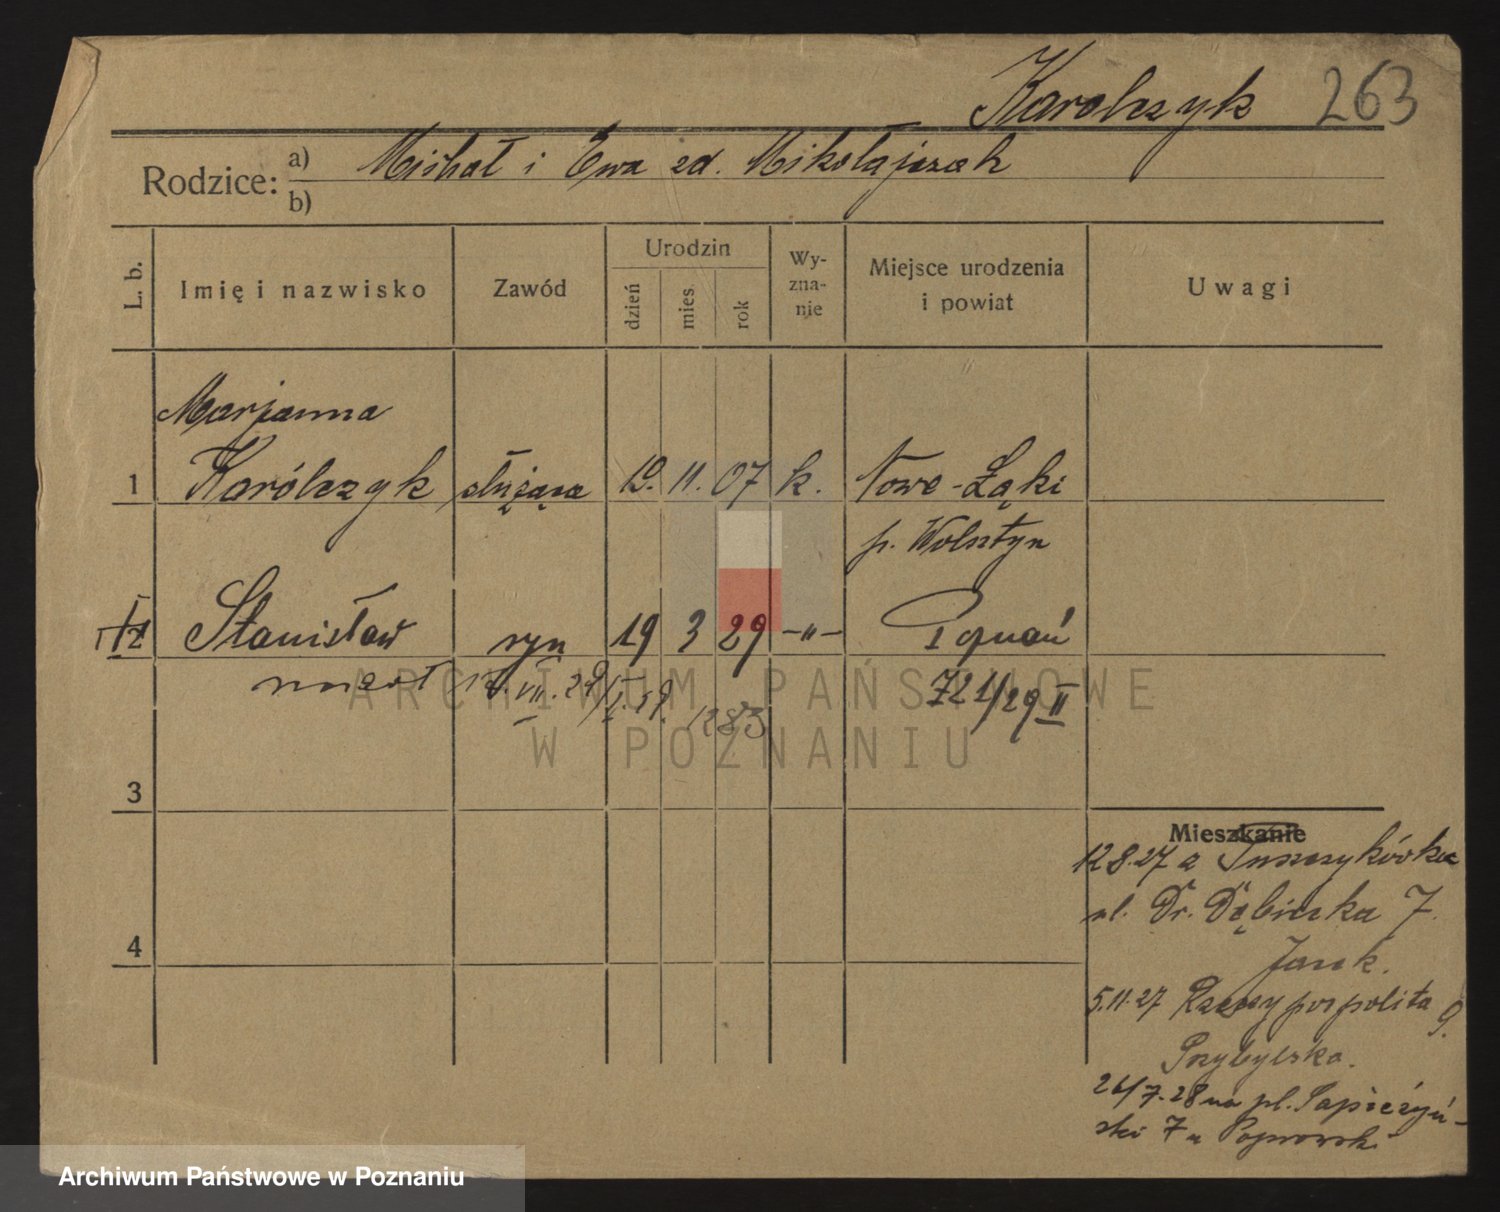 Karolczyk 263
Rodzice: a) Michał i Ewa zd. Mikołajczak
b)
L. b. Imię i nazwisko Zawód Urodzin dzień mies. rok Wy-zna-nie Miejsce urodzenia i powiat Uwagi
Marjanna
1 Karólczyk służąca 19. 11. 07 k. Nowe-Łąki
p. Wolsztyn
2 Stanisław syn 19 3 29 -"- Poznań
zmarł 12. VII. 29 1283 721/29 II
3
Mieszkanie
12.8.27 z Puszczykówka
ul. Dr. Dębińska 7.
4
5.11.27 Rzeczypospolita 9.
Przybylska.
26/7.28 na pl. Sapieżyń-
ski 7 u
ARCHIWUM PAŃSTWOWE
W POZNANIU
Archiwum Państwowe w Poznaniu